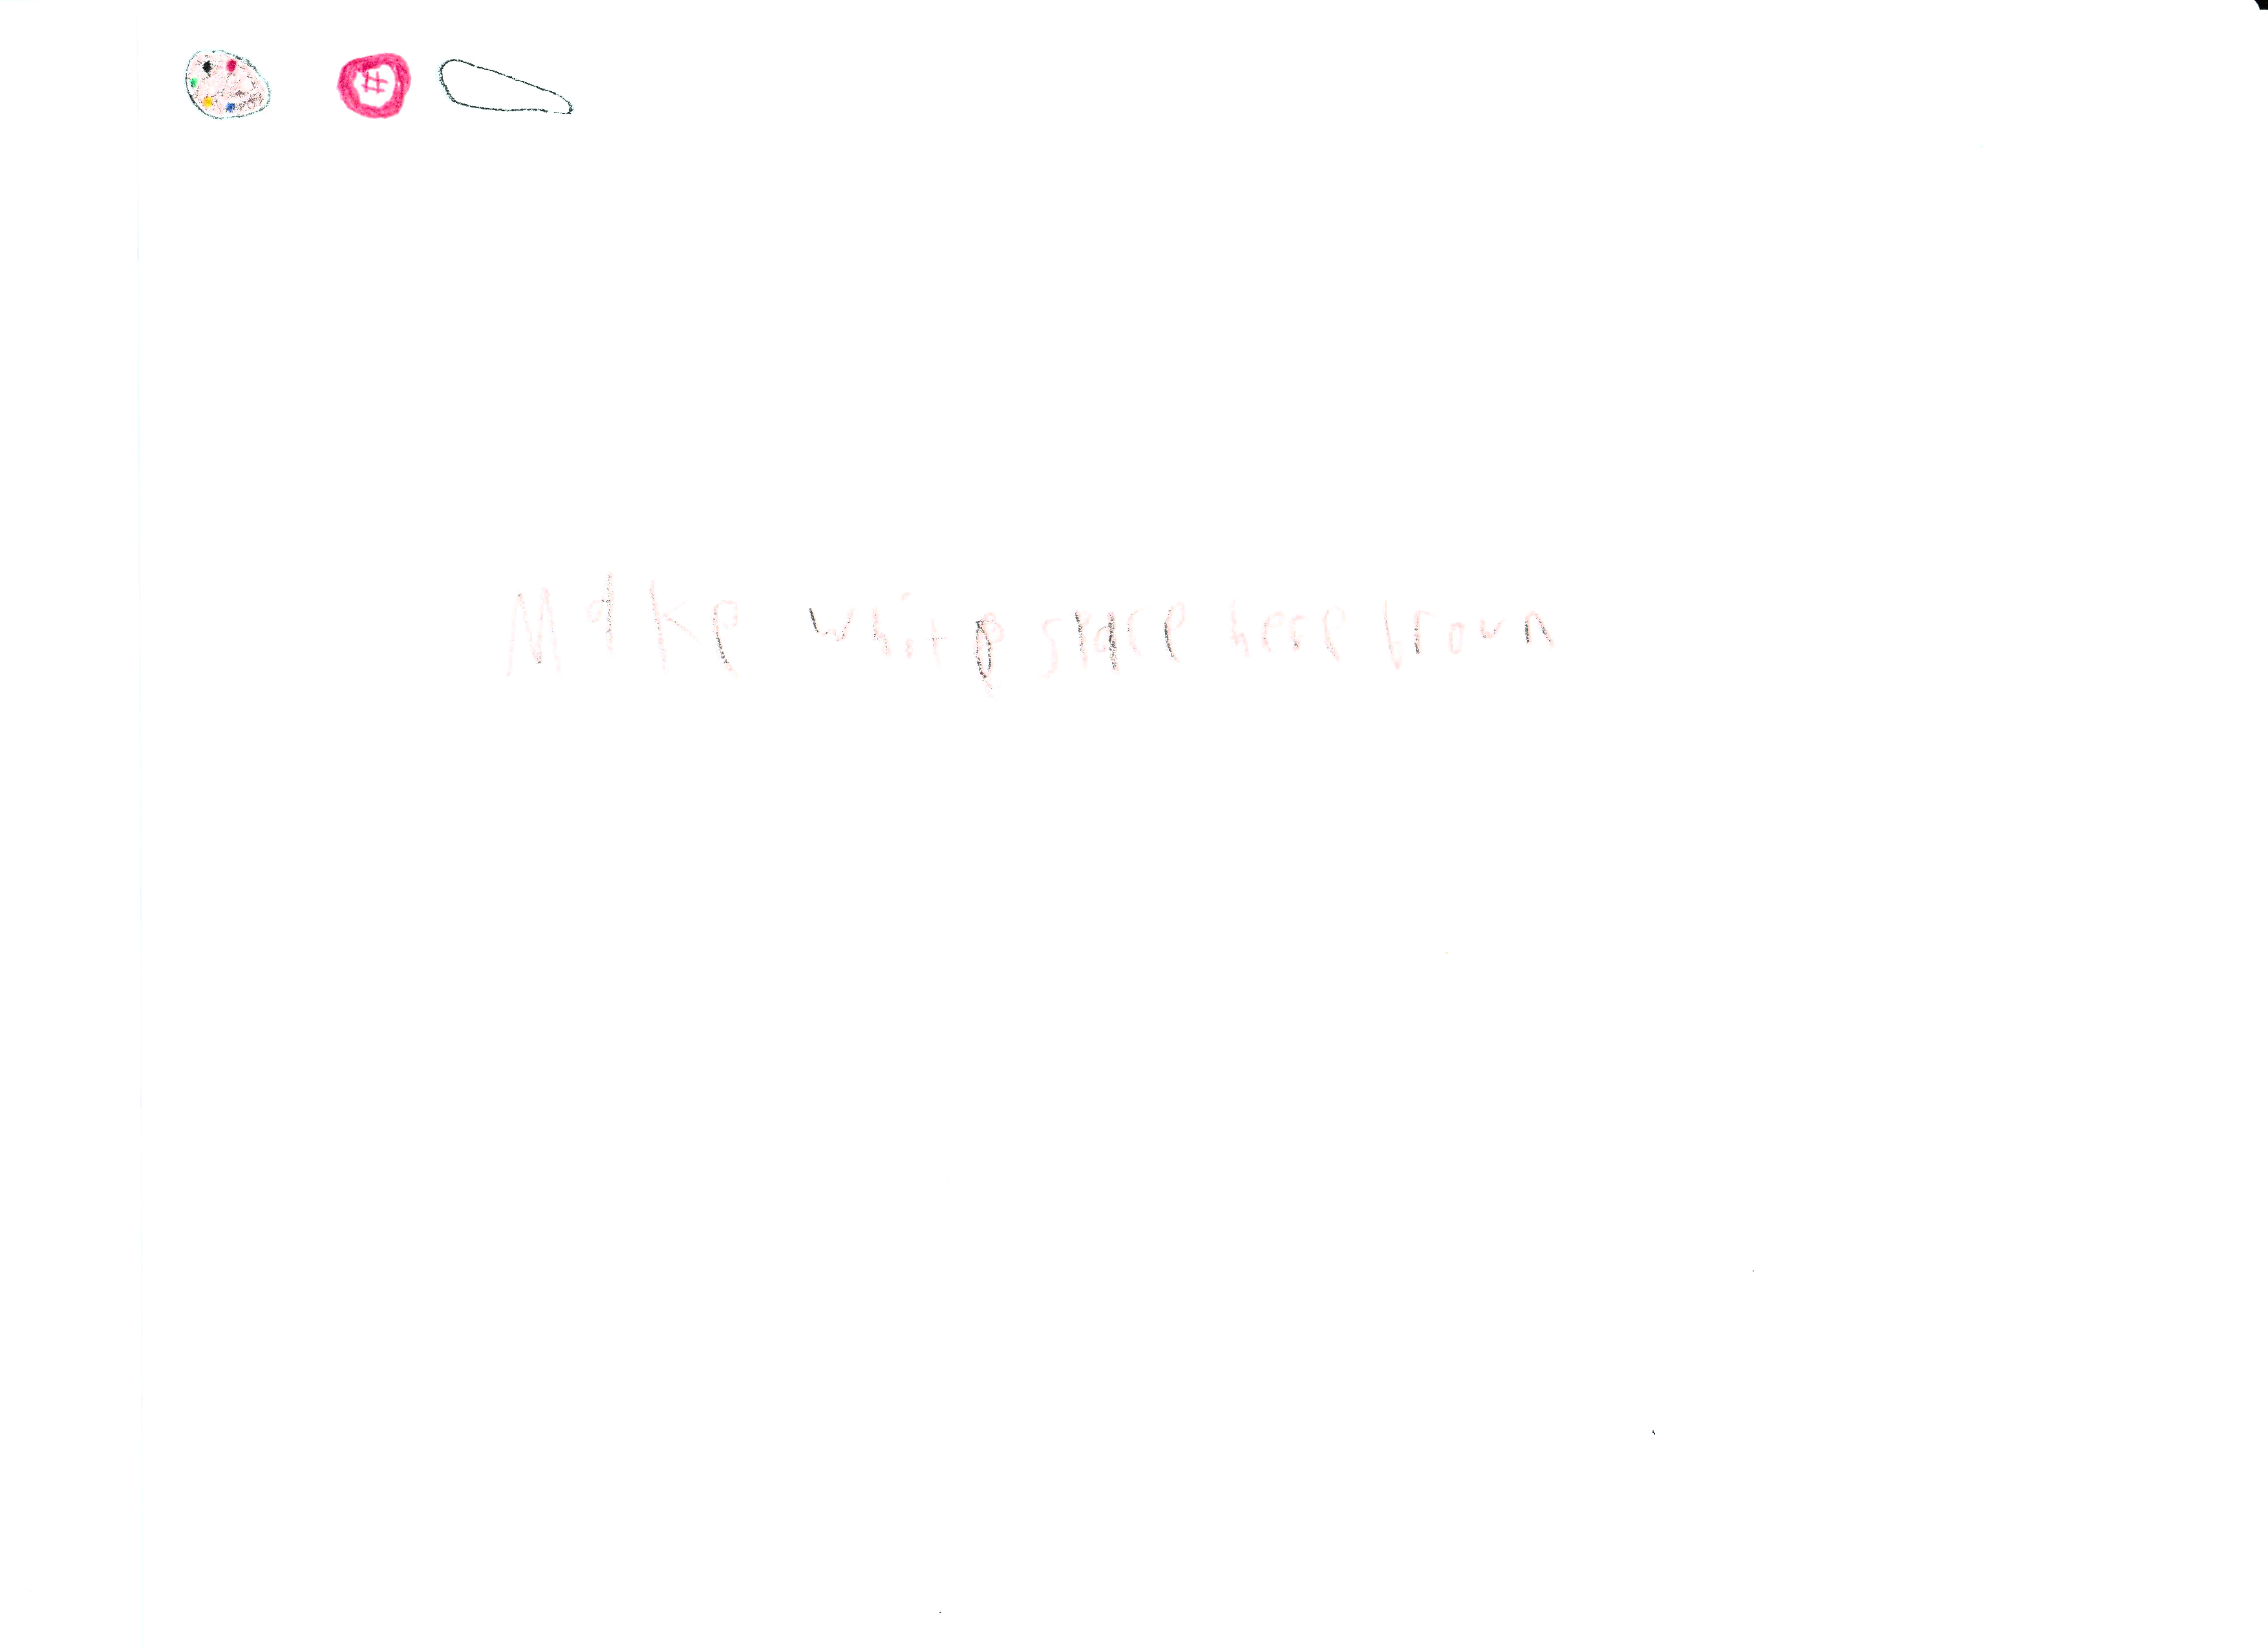 #
Make white space here brown